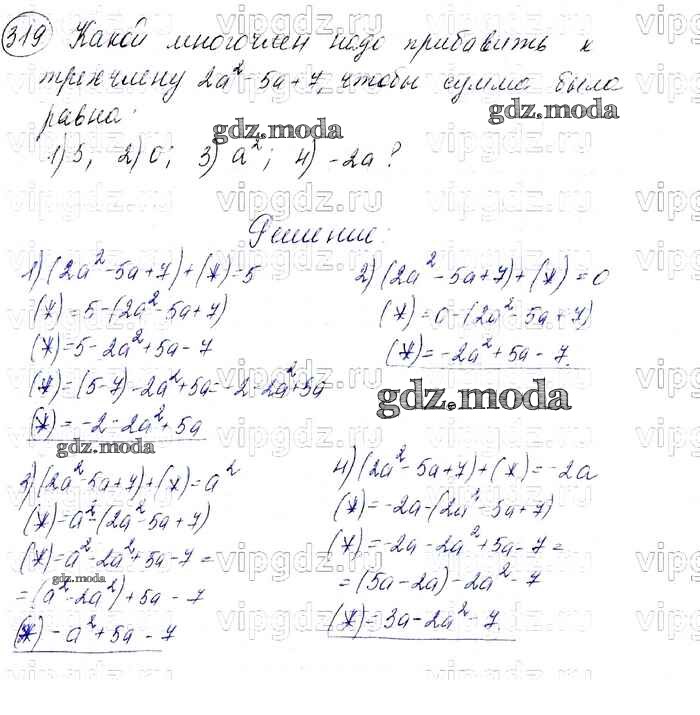 319 Какой многочлен надо прибавить к
трехчлену 2a² - 5a + 7, чтобы сумма была
равна:
1) 5; 2) 0; 3) a²; 4) -2a?
gdz.moda
Решение:
1) (2a² - 5a + 7) + (*) = 5
(*) = 5 - (2a² - 5a + 7)
(*) = 5 - 2a² + 5a - 7
(*) = (5 - 7) - 2a² + 5a = -2 - 2a² + 5a
(*) = -2 - 2a² + 5a
2) (2a² - 5a + 7) + (*) = 0
(*) = 0 - (2a² - 5a + 7)
(*) = -2a² + 5a - 7.
gdz.moda
3) (2a² - 5a + 7) + (*) = a²
(*) = a² - (2a² - 5a + 7)
(*) = a² - 2a² + 5a - 7 =
= (a² - 2a²) + 5a - 7
(*) - a² + 5a - 7
4) (2a² - 5a + 7) + (*) = -2a
(*) = -2a - (2a² - 5a + 7)
(*) = -2a - 2a² + 5a - 7 =
= (5a - 2a) - 2a² - 7
(*) = 3a - 2a² - 7.
gdz.moda
gdz.moda
gdz.moda
vipgdz.ru